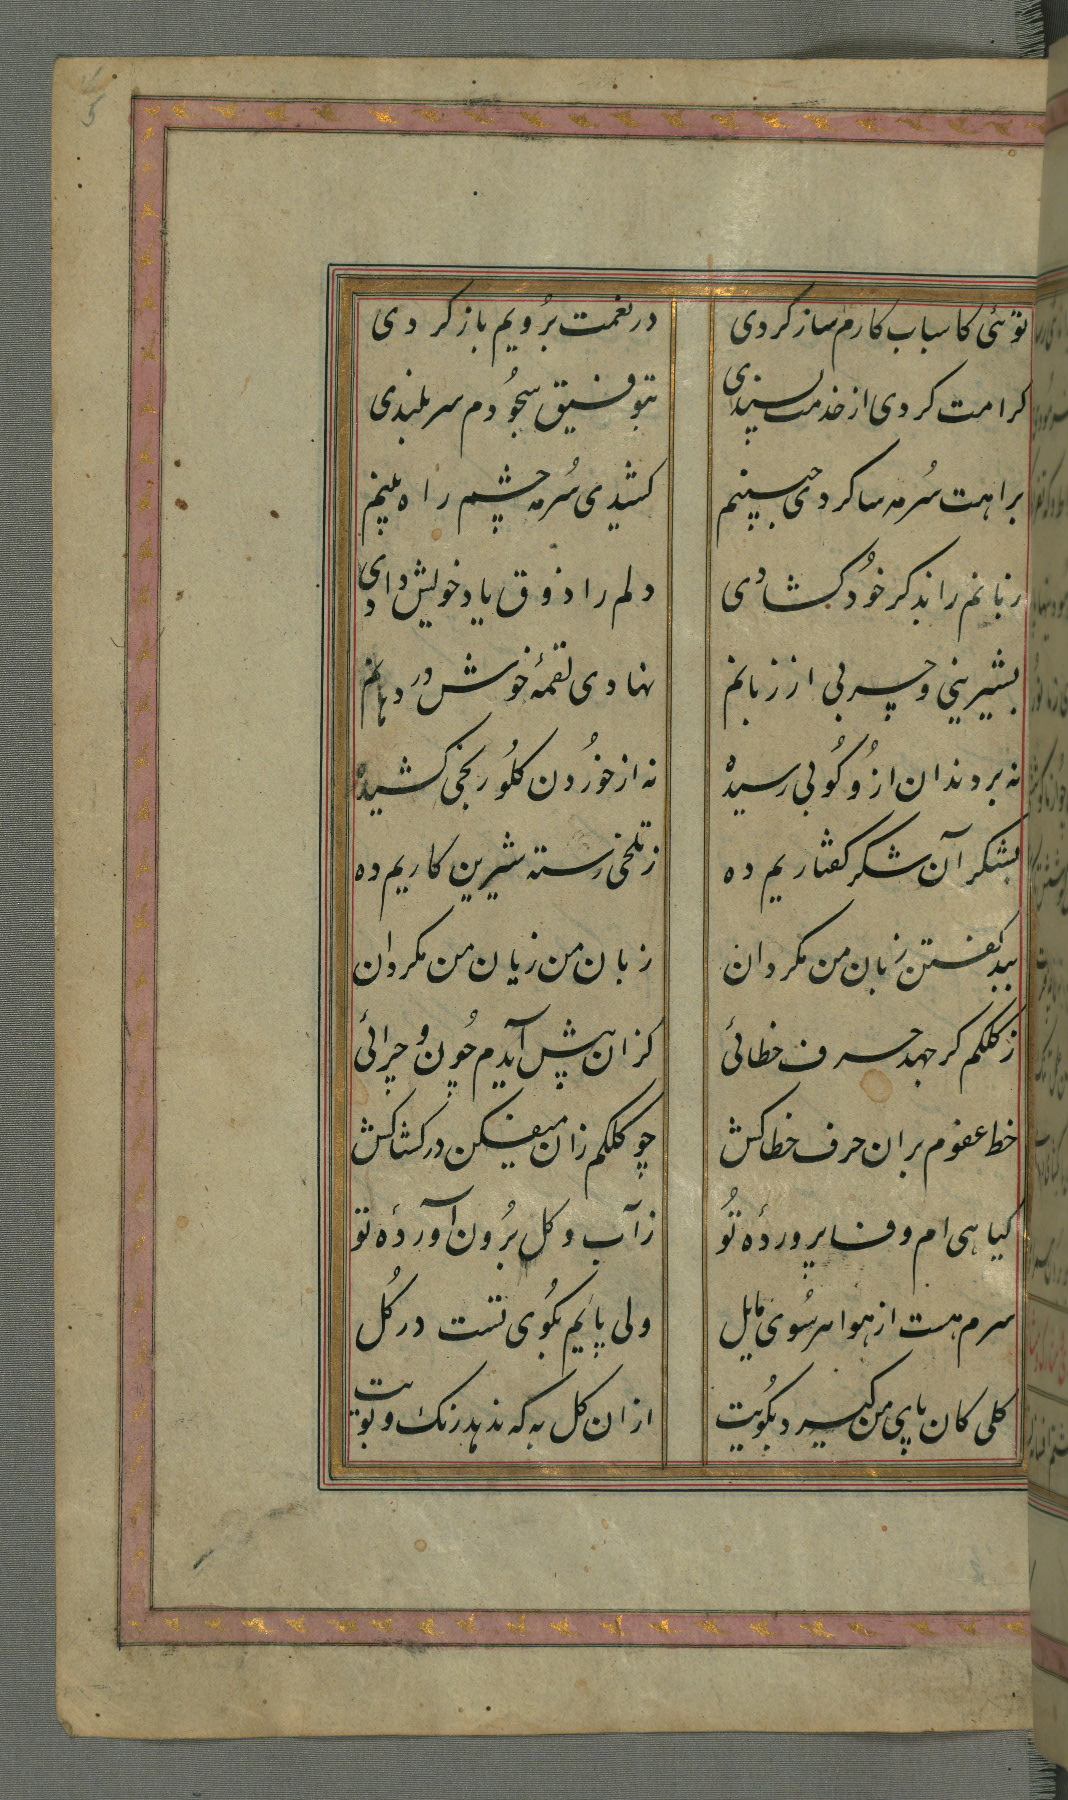 5
توئی کاسباب کارم ساز کردی
در نعمت برویم باز کردی
کرامت کردی از خدمت پسندی
بتوفیق سجودم سربلندی
براهت سرمه سا کردی جبینم
کشیدی سرمه چشم راه بینم
زبانم را بذکر خود کشادی
دلم را ذوق یاد خویش دادی
بشیرینی و چربی از زبانم
نهادی لقمۀ خوش در دهانم
نه بر دندان ازو کوبی رسیده
نه از خوردن کلو رنجی کشیده
بشکر آن شکر کفتاریم ده
ز تلخی رسته شیرین کاریم ده
ببد کفتن زبان من مکردان
زبان من زیان من مکردان
ز کلکم کر جهد حرف خطائی
کزان پیش آیدم چون و چرائی
خط عفوم بران حرف خطا کش
چو کلکم زان میفکن در کشاکش
کیاهی ام وفا پروردۀ تو
ز آب و کل برون آوردۀ تو
سرم هست از هوا هر سوی مایل
ولی پایم بکوی تست در کل
کلی کان پای من کیرد بکویت
ازان کل به که ندهد رنک و بویت